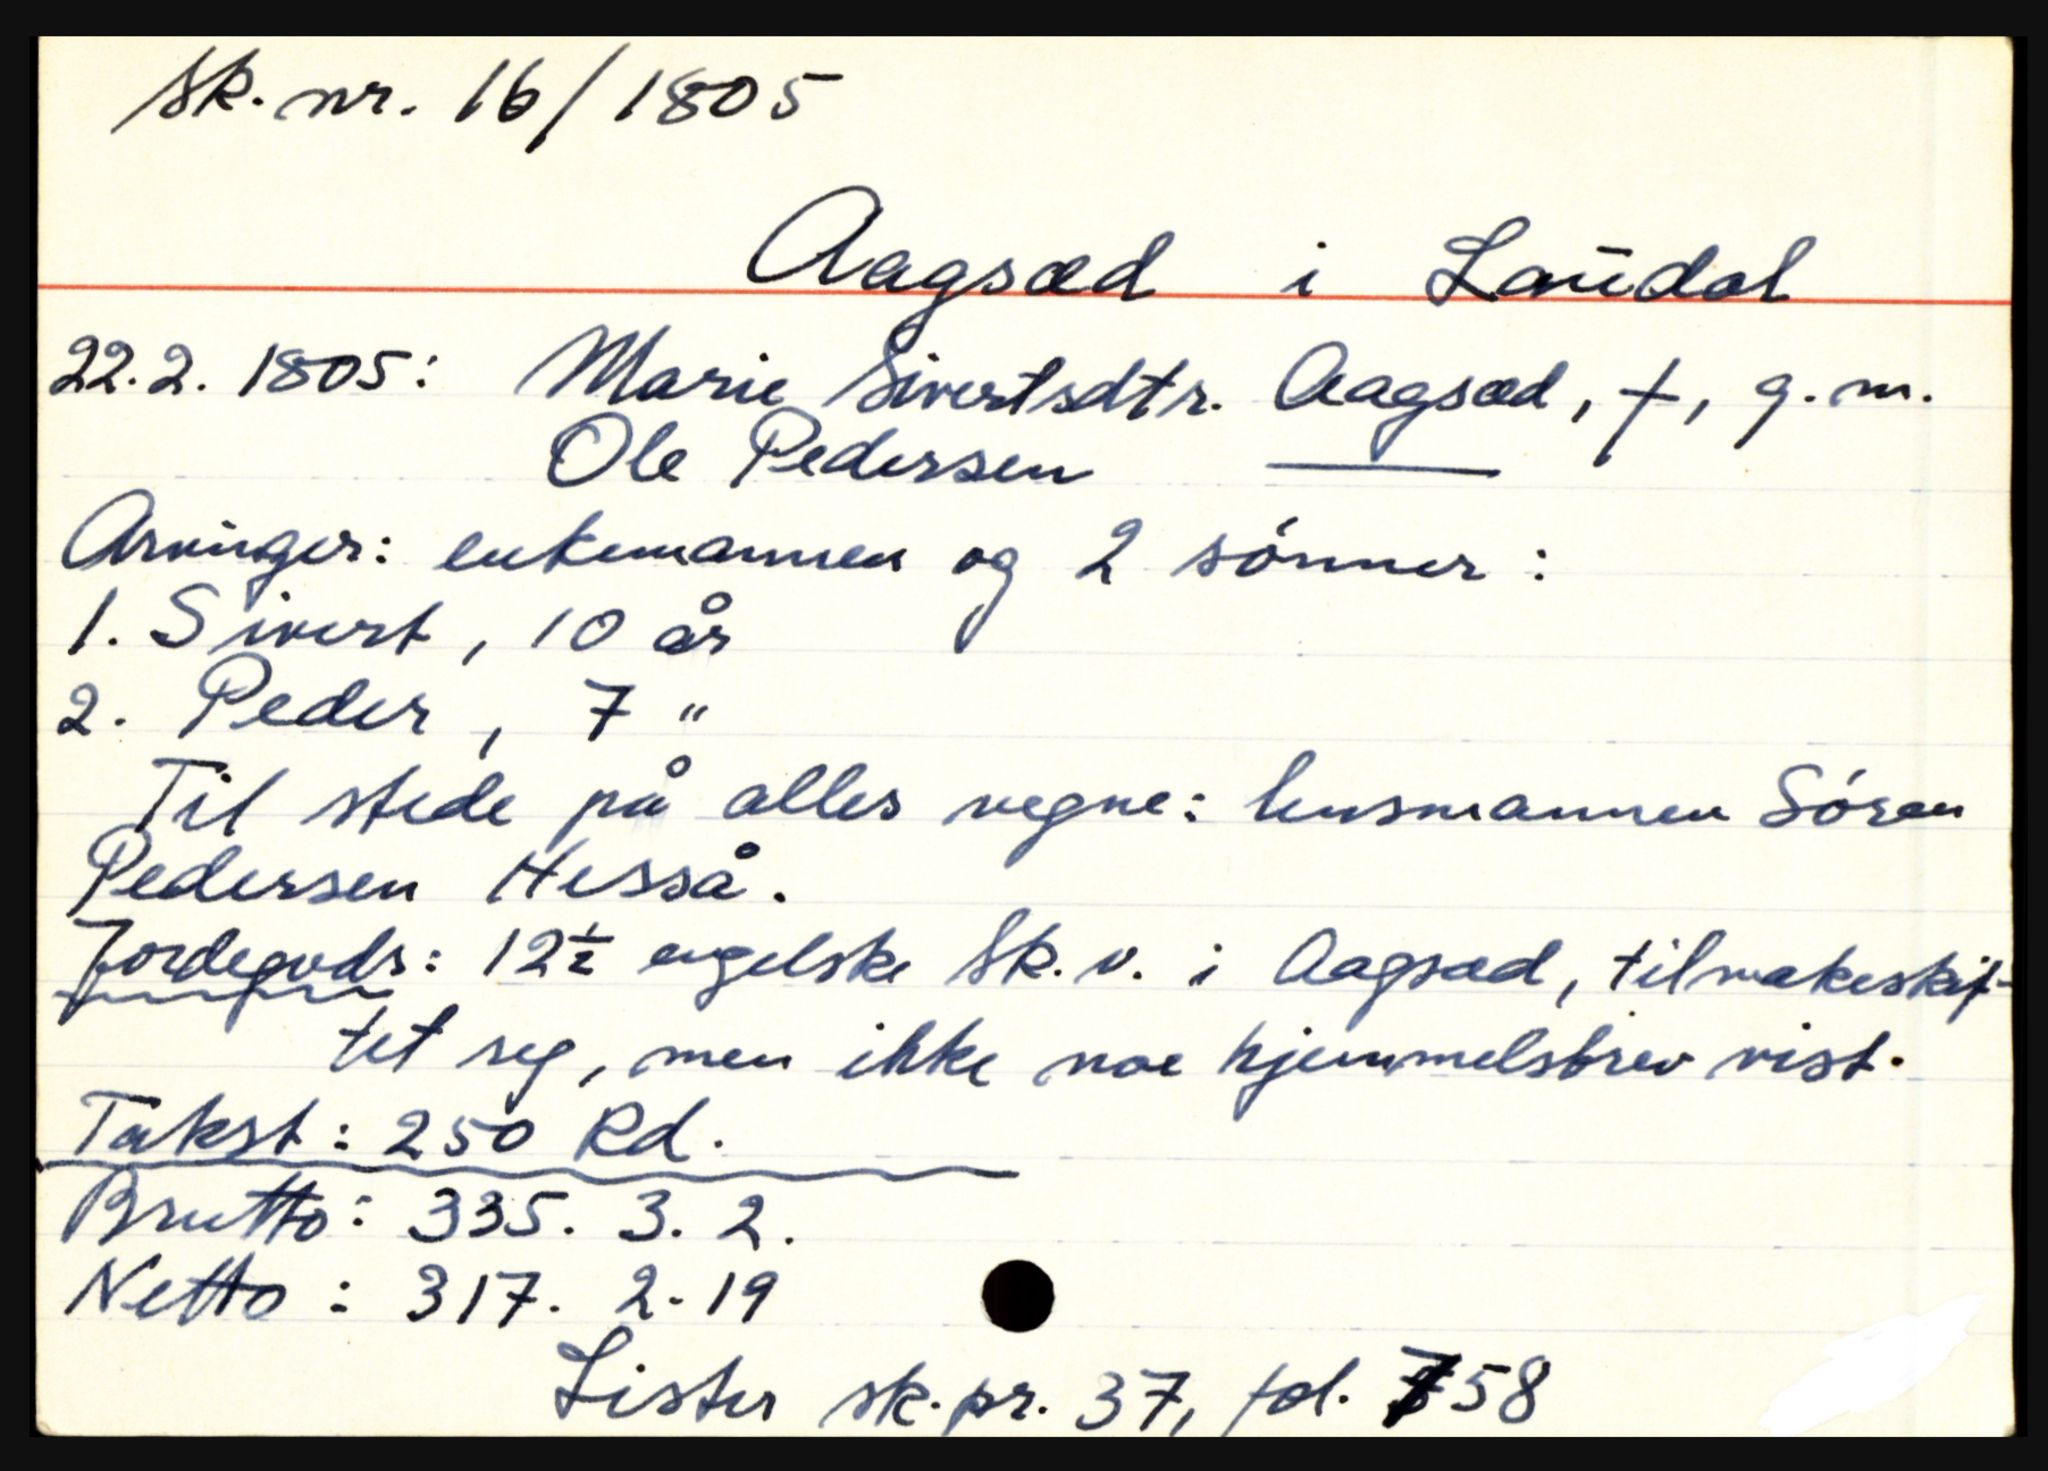 Sk. nr. 16/1805
Aagsæd i Laudal
22.2. 1805: Marie Sivertsdtr. Aagsæd, †, g. m.
Ole Pedersen ———
Arvinger: enkemannen og 2 sónner:
1. Sivert, 10 år
2. Peder, 7 "
Til stede på alles vegne: lensmannen Sóren
Pedersen Hesså.
Jordegods: 12½ engelske sk. v. i Aagsæd, tilmakeskif-
tet seg, men ikke noe hjemmelsbrev vist.
Takst: 250 Rd.
Brutto: 335. 3. 2.
Netto: 317. 2. 19
Lister sk. pr. 37, fol. 758